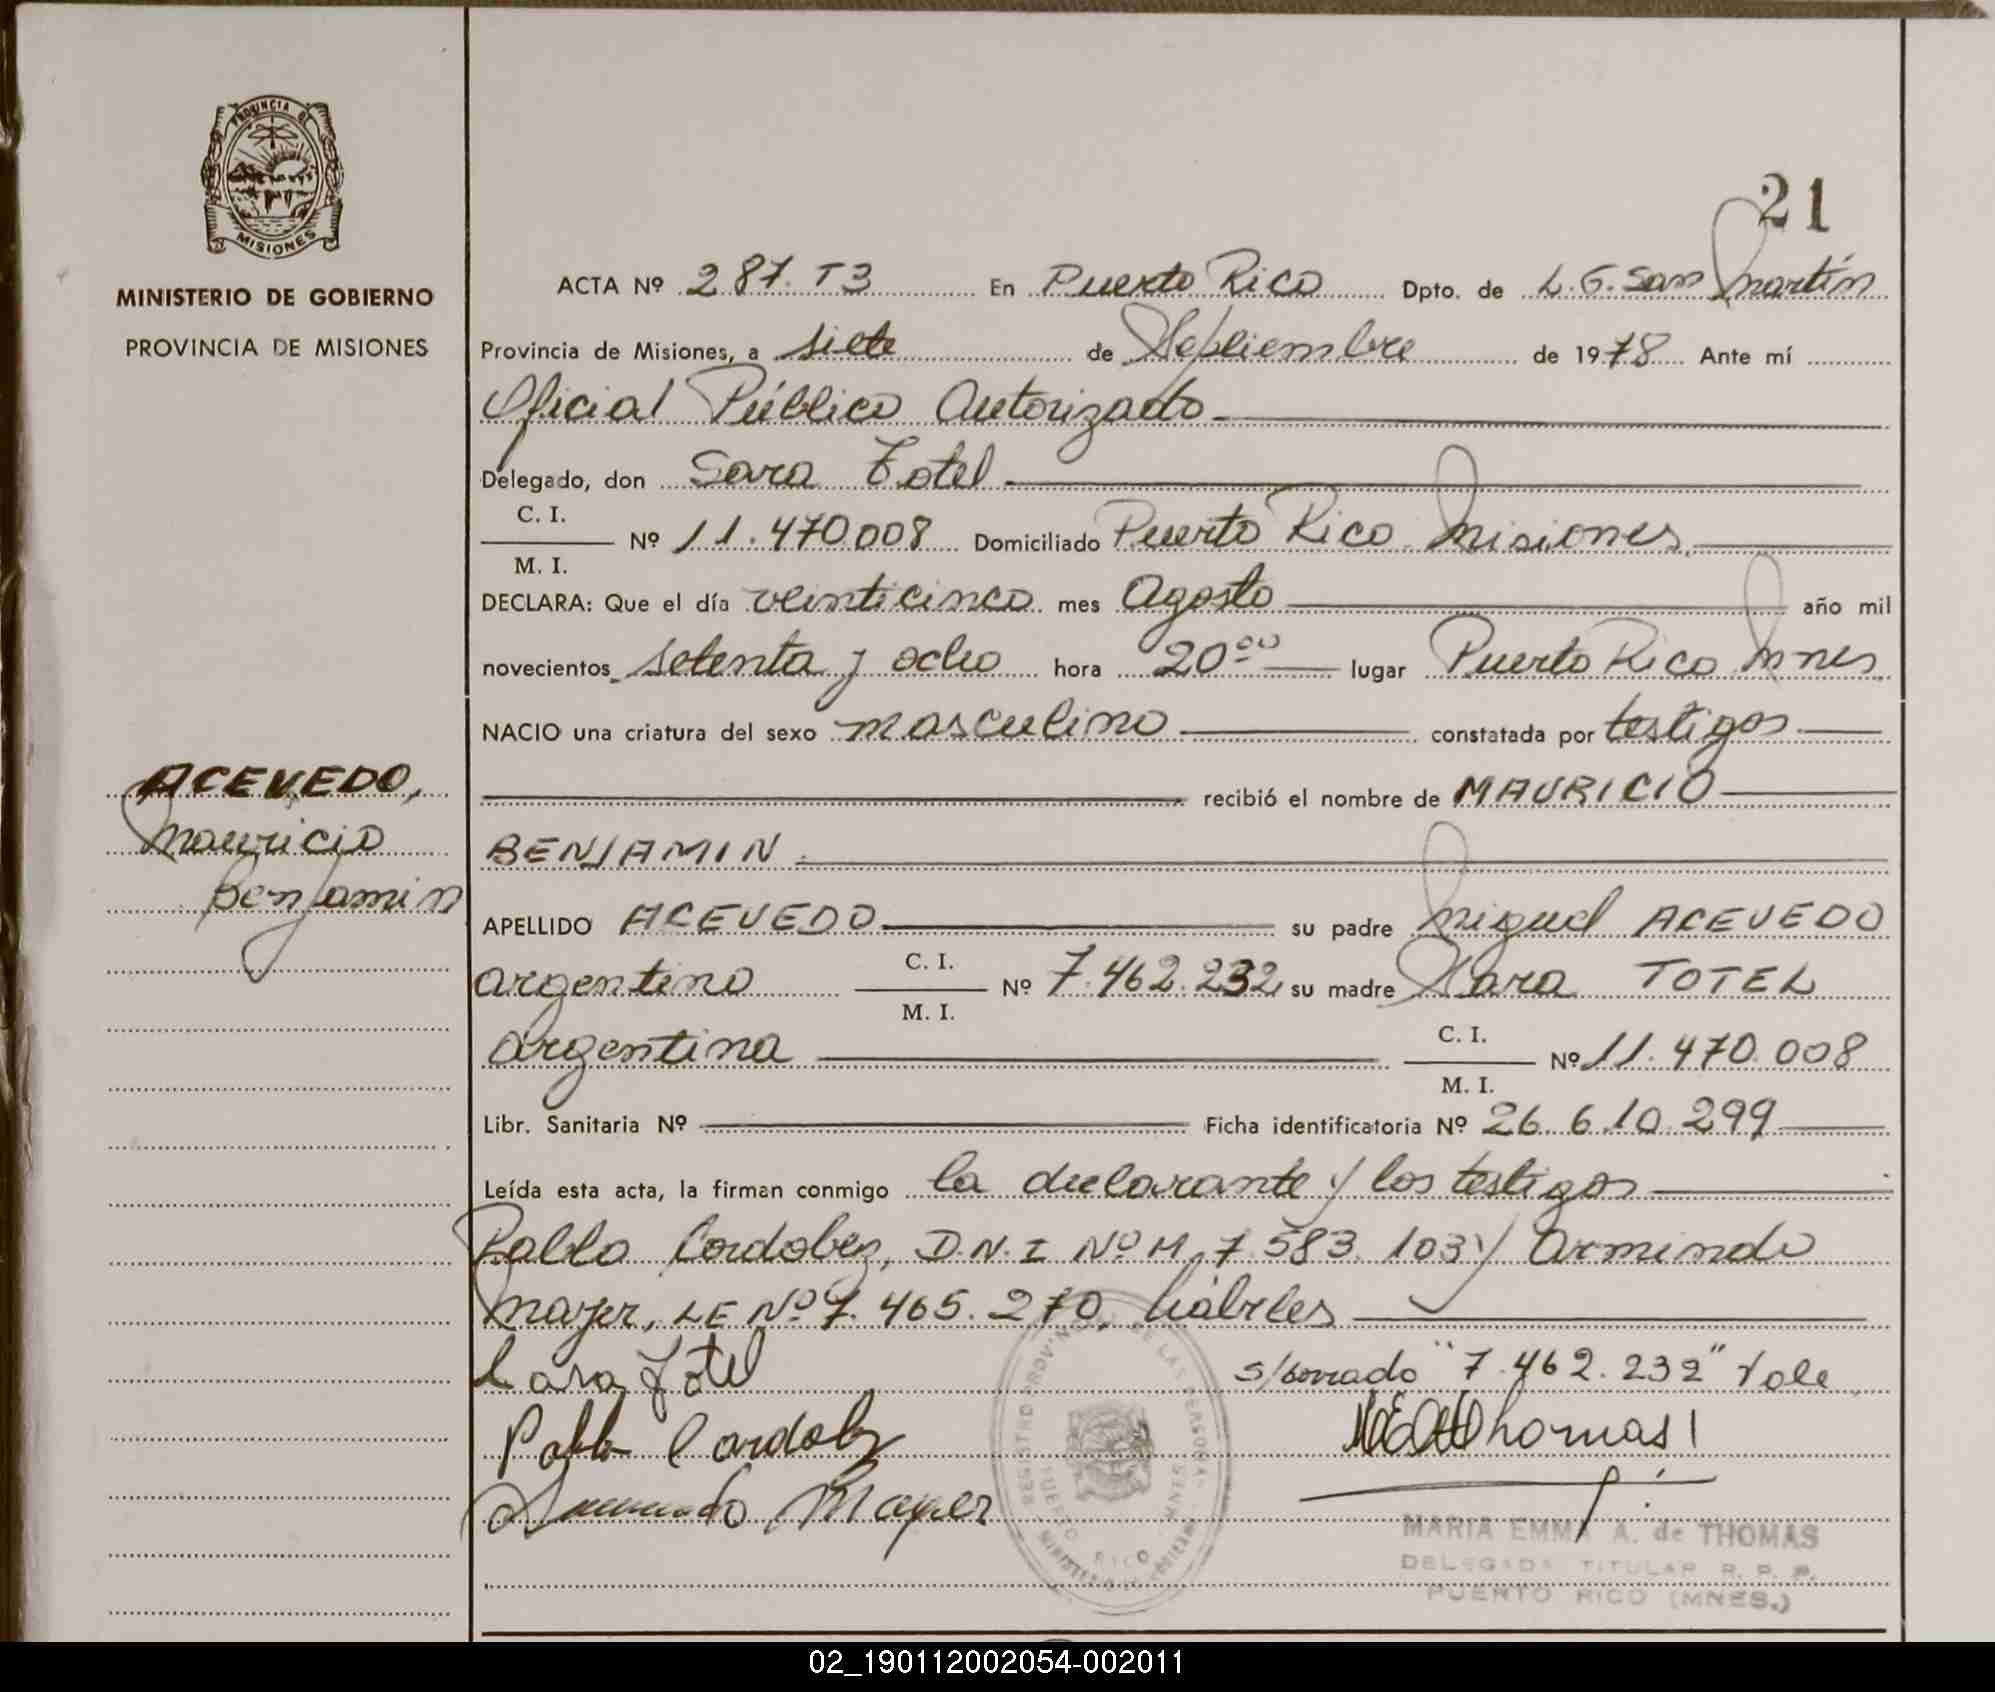 PROVINCIA DE
MISIONES
MINISTERIO DE GOBIERNO
PROVINCIA DE MISIONES
ACEVEDO,
Mauricio
Benjamin
21
ACTA Nº 287. T3 En Puerto Rico Dpto. de L. G. San Martín
Provincia de Misiones, a siete de Septiembre de 1978 Ante mí
Oficial Público Autorizado
Delegado, don Sara Totel
C. I.
Nº 11.470.008 Domiciliado Puerto Rico Misiones
M. I.
DECLARA: Que el día veinticinco mes Agosto año mil
novecientos setenta y ocho hora 20 00 lugar Puerto Rico Mnes
NACIO una criatura del sexo masculino constatada por testigos
recibió el nombre de MAURICIO
BENJAMIN
APELLIDO ACEVEDO su padre Miguel ACEVEDO
argentino C. I. M. I. Nº 7.462.232 su madre Sara TOTEL
argentina C. I. M. I. Nº 11.470.008
Libr. Sanitaria Nº Ficha identificatoria Nº 26.6.10.299
Leída esta acta, la firman conmigo la declarante y los testigos
Pablo Cordobez, D.N.I Nº M. 7.583.103 y Armindo
Mayer, LE Nº 7.465.270, hábiles
Sara Totel s/borrado "7.462.232" Vale
Pablo Cordobez Thomas
Armindo Mayer
MARIA EMMA A. de THOMAS
DELEGADA TITULAR R. P. P.
PUERTO RICO (MNES.)
REGISTRO PROVINCIAL DE LAS PERSONAS
PUERTO RICO MNES
MINISTERIO DE GOBIERNO
02_190112002054-002011